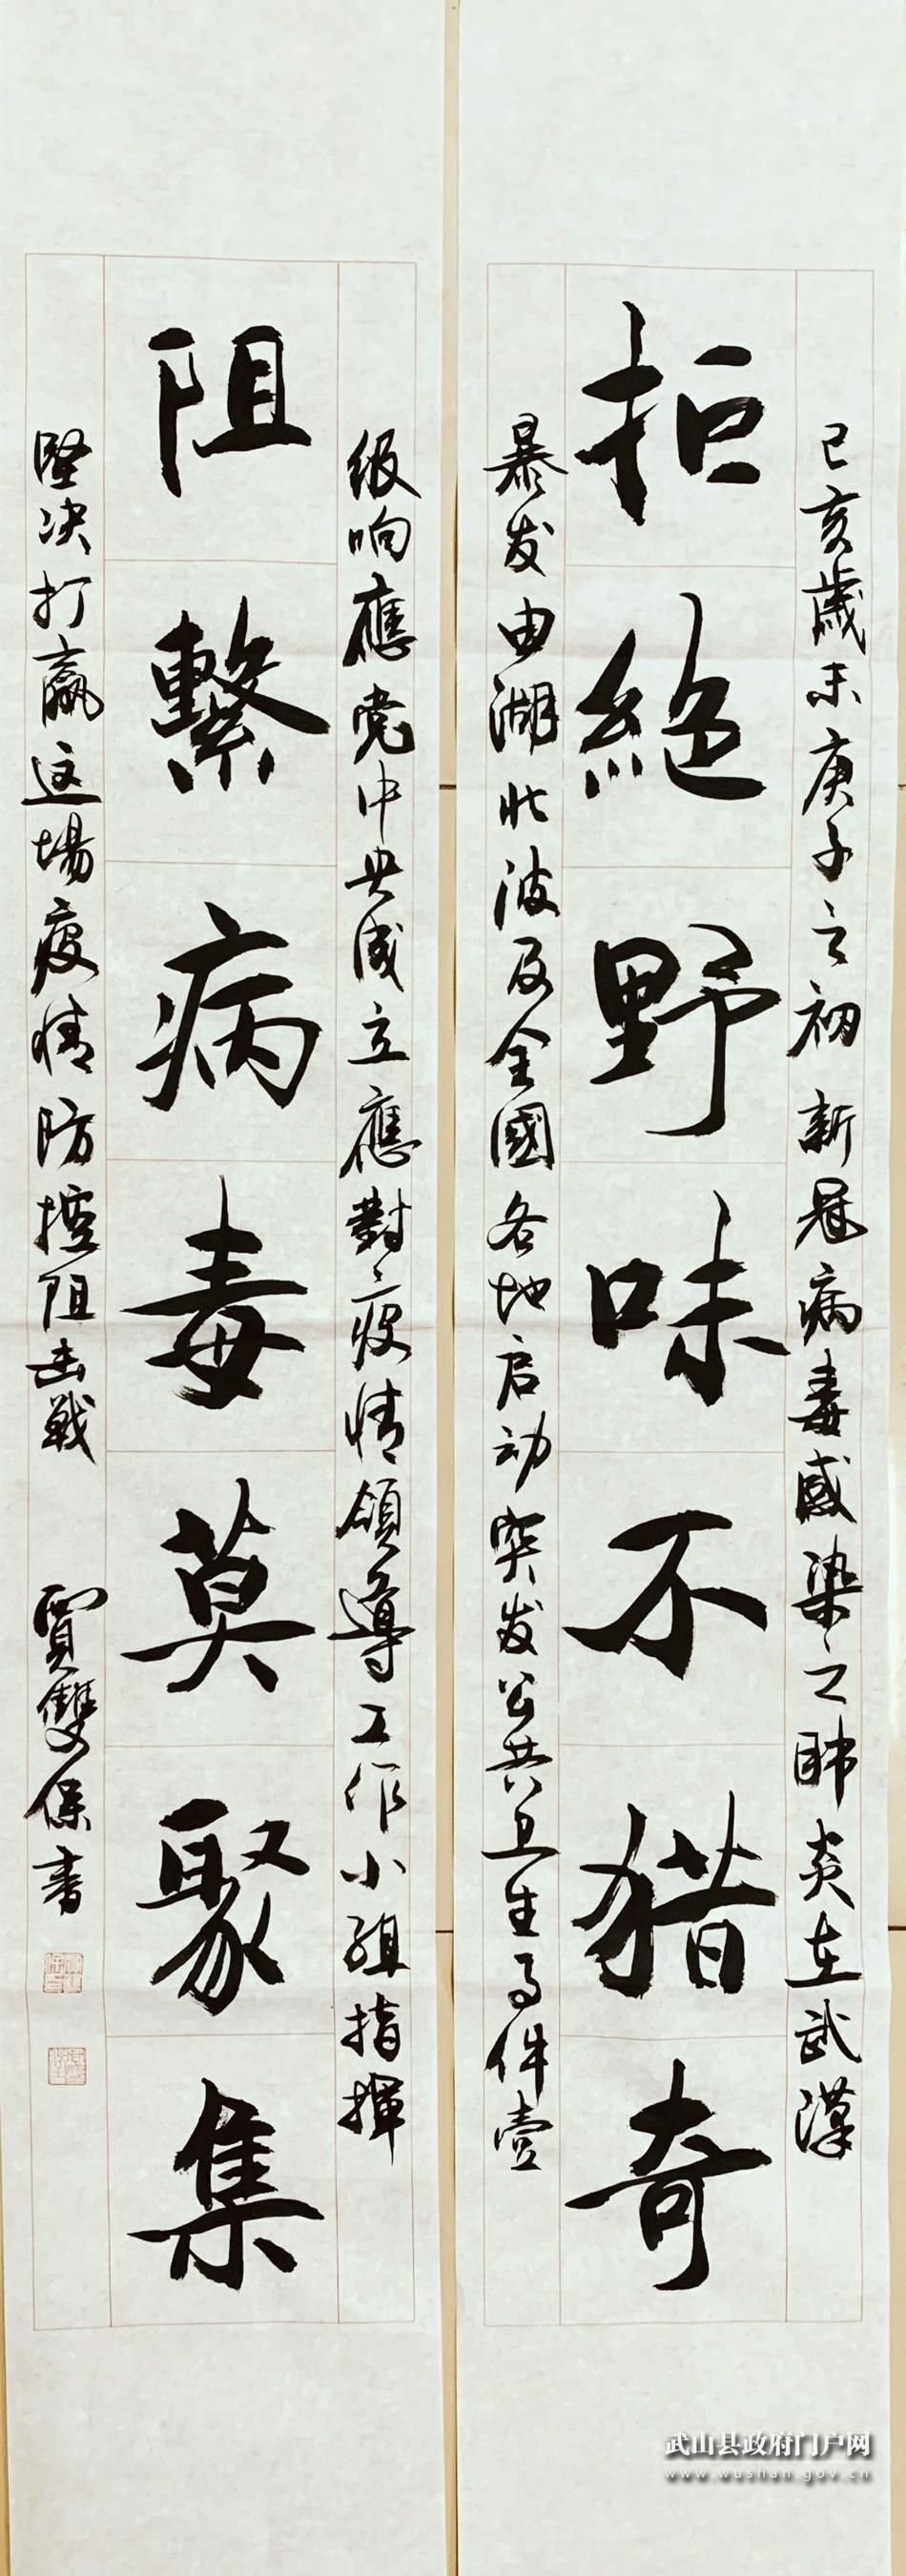 己亥歲末庚子之初新冠病毒感染之肺炎在武漢
拒絶野味不猎奇
暴发由湖北波及全國各地启动突发公共卫生事件壹
级响應党中央成立應對疫情領導工作小组指揮
阻繫病毒莫聚集
堅决打贏这場疫情防控阻击戰
賈雙保書
武山县政府门户网
www.wushan.gov.cn